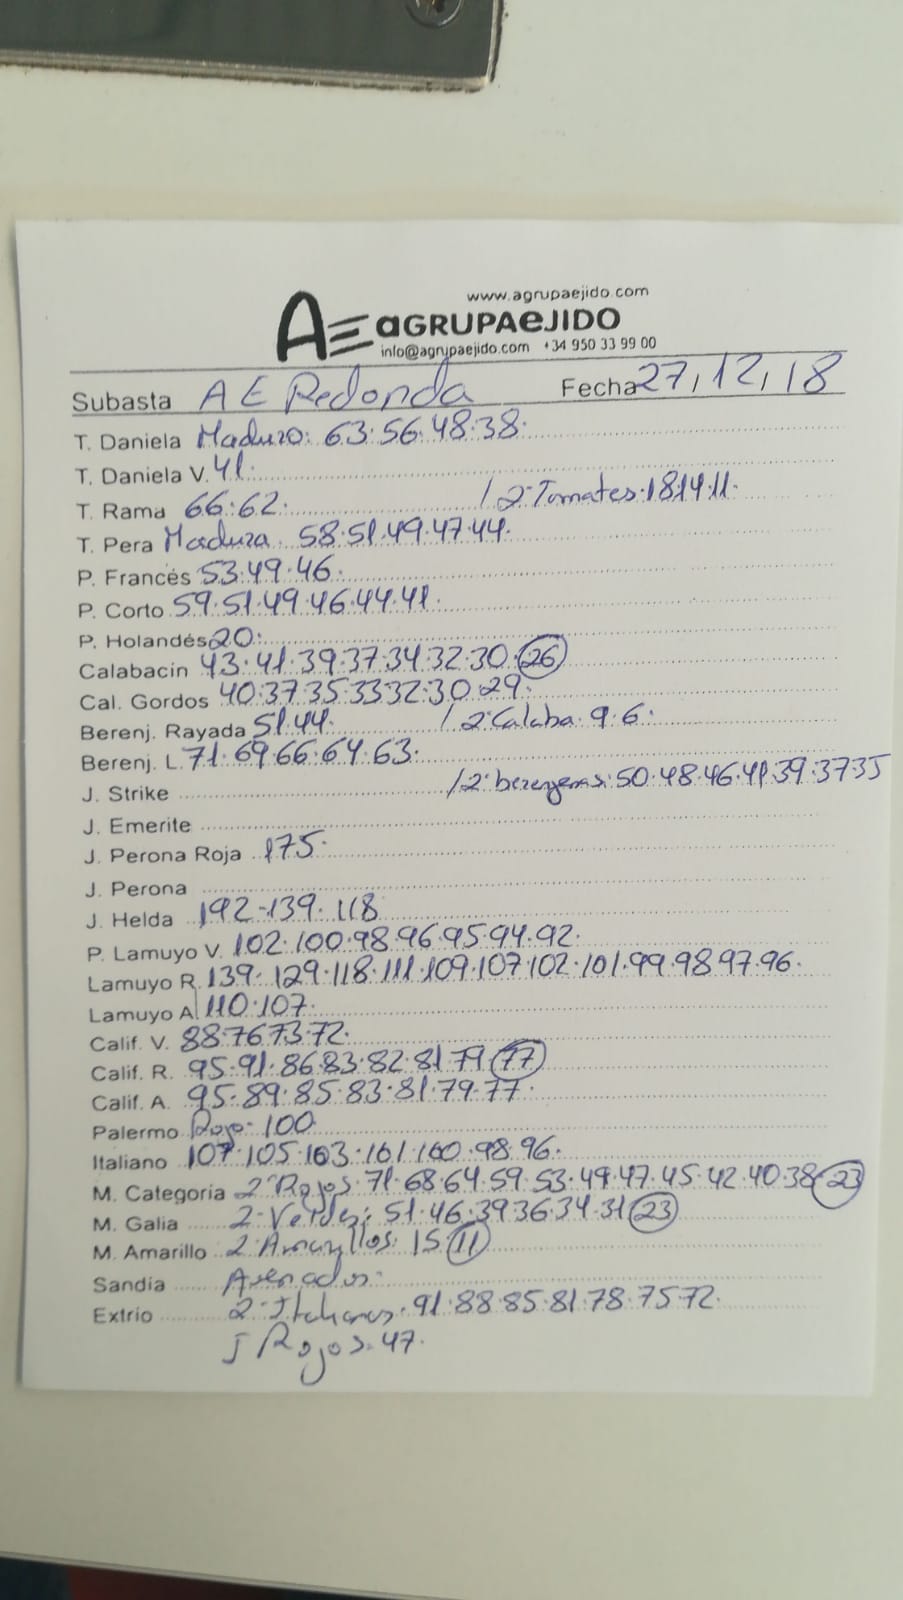 www.agrupaejido.com
AE aGRUPAeJIDO
info@agrupaejido.com +34 950 33 99 00
Subasta A E Redonda Fecha 27/12/18
T. Daniela Maduro: 63.56.48.38.
T. Daniela V. 41.
T. Rama 66.62. / 2ª Tomates. 18.14.11.
T. Pera Madura. 58.51.49.47.44.
P. Francés 53.49.46.
P. Corto 59.51.49.46.44.41.
P. Holandés 20.
Calabacin 43.41.39.37.34.32.30.26
Cal. Gordos 40.37.35.33.32.30.29.
Berenj. Rayada 51.44. / 2ª Calaba. 9.6.
Berenj. L. 71.69.66.64.63.
J. Strike / 2ª berengenas: 50.48.46.41.39.37.35
J. Emerite
J. Perona Roja 175.
J. Perona
J. Helda 192-139.118
P. Lamuyo V. 102.100.98.96.95.94.92.
Lamuyo R. 139.129.118.111.109.107.102.101.99.98.97.96.
Lamuyo A. 110.107.
Calif. V. 88.76.73.72.
Calif. R. 95.91.86.83.82.81.79.77
Calif. A. 95.89.85.83.81.79.77.
Palermo Rojo. 100
Italiano 107.105.103.101.100.98.96.
M. Categoria 2ª Rojos. 71.68.64.59.53.49.47.45.42.40.38.23
M. Galia 2ª Verdes: 51.46.39.36.34.31.23
M. Amarillo 2ª Amaryllos: 15.11
Sandia Asenados.
Extrio 2ª Italianos. 91.88.85.81.78.75.72.
J Rojos. 47.